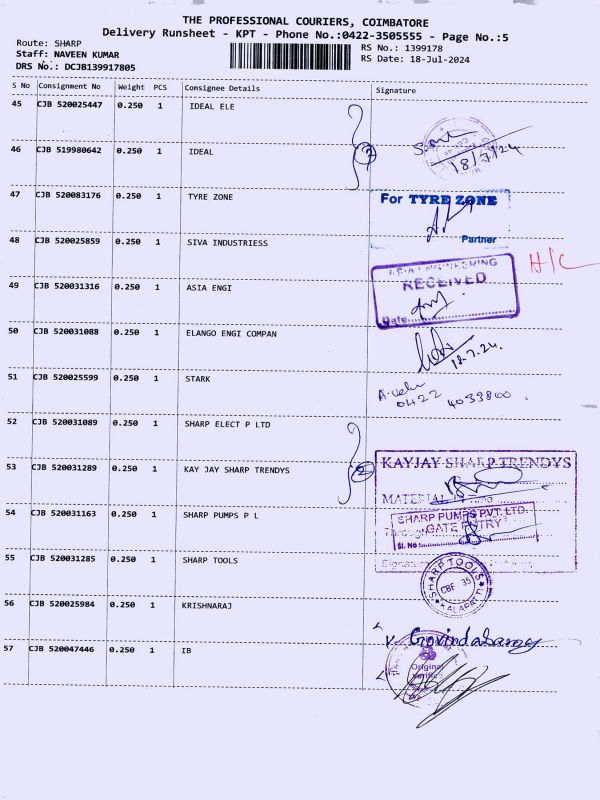 THE PROFESSIONAL COURIERS, COIMBATORE
Delivery Runsheet - KPT - Phone No.:0422-3505555 - Page No.:5
Route: SHARP
Staff: NAVEEN KUMAR
DRS No.: DCJB139917805
RS No.: 1399178
RS Date: 18-Jul-2024
S No Consignment No Weight PCS Consignee Details Signature
45 CJB 520025447 0.250 1 IDEAL ELE
46 CJB 519980642 0.250 1 IDEAL
2
18/7/24
47 CJB 520083176 0.250 1 TYRE ZONE
For TYRE ZONE
Partner
48 CJB 520025859 0.250 1 SIVA INDUSTRIESS
H/C
49 CJB 520031316 0.250 1 ASIA ENGI
ASIA ENGINEERING
RECEIVED
Date
50 CJB 520031088 0.250 1 ELANGO ENGI COMPAN
18.7.24.
51 CJB 520025599 0.250 1 STARK
0422 4039800
52 CJB 520031089 0.250 1 SHARP ELECT P LTD
53 CJB 520031289 0.250 1 KAY JAY SHARP TRENDYS
2
KAYJAY SHARP TRENDYS
MATERIAL
54 CJB 520031163 0.250 1 SHARP PUMPS P L
SHARP PUMPS PVT. LTD.
GATE ENTRY
Sl. No
Signature
55 CJB 520031285 0.250 1 SHARP TOOLS
SHARP TOOLS
CBE 35
KALAPATTI
56 CJB 520025984 0.250 1 KRISHNARAJ
V. Govindasamy
57 CJB 520047446 0.250 1 IB
Original